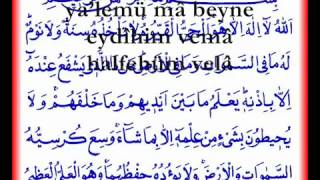 ya'lemü mâ beyne
eydîhim vemâ
halfehüm velâ
اَللّٰهُ لَٓا اِلٰهَ اِلَّا هُوَ اَلْحَيُّ الْقَيُّومُ لَا تَأْخُذُهُ سِنَةٌ وَلَا نَوْمٌ
لَهُ مَا فِي السَّمٰوَاتِ يَشْفَعُ عِنْدَهُ
اِلَّا بِاِذْنِهِ يَعْلَمُ مَا بَيْنَ اَيْدِيهِمْ وَمَا خَلْفَهُمْ وَلَا
يُحِيطُونَ بِشَيْءٍ مِنْ عِلْمِهِ اِلَّا بِمَا شَاءَ وَسِعَ كُرْسِيُّهُ
السَّمٰوَاتِ وَالْاَرْضَ وَلَا يَؤُدُهُ حِفْظُهُمَا وَهُوَ الْعَلِيُّ الْعَظِيمُ